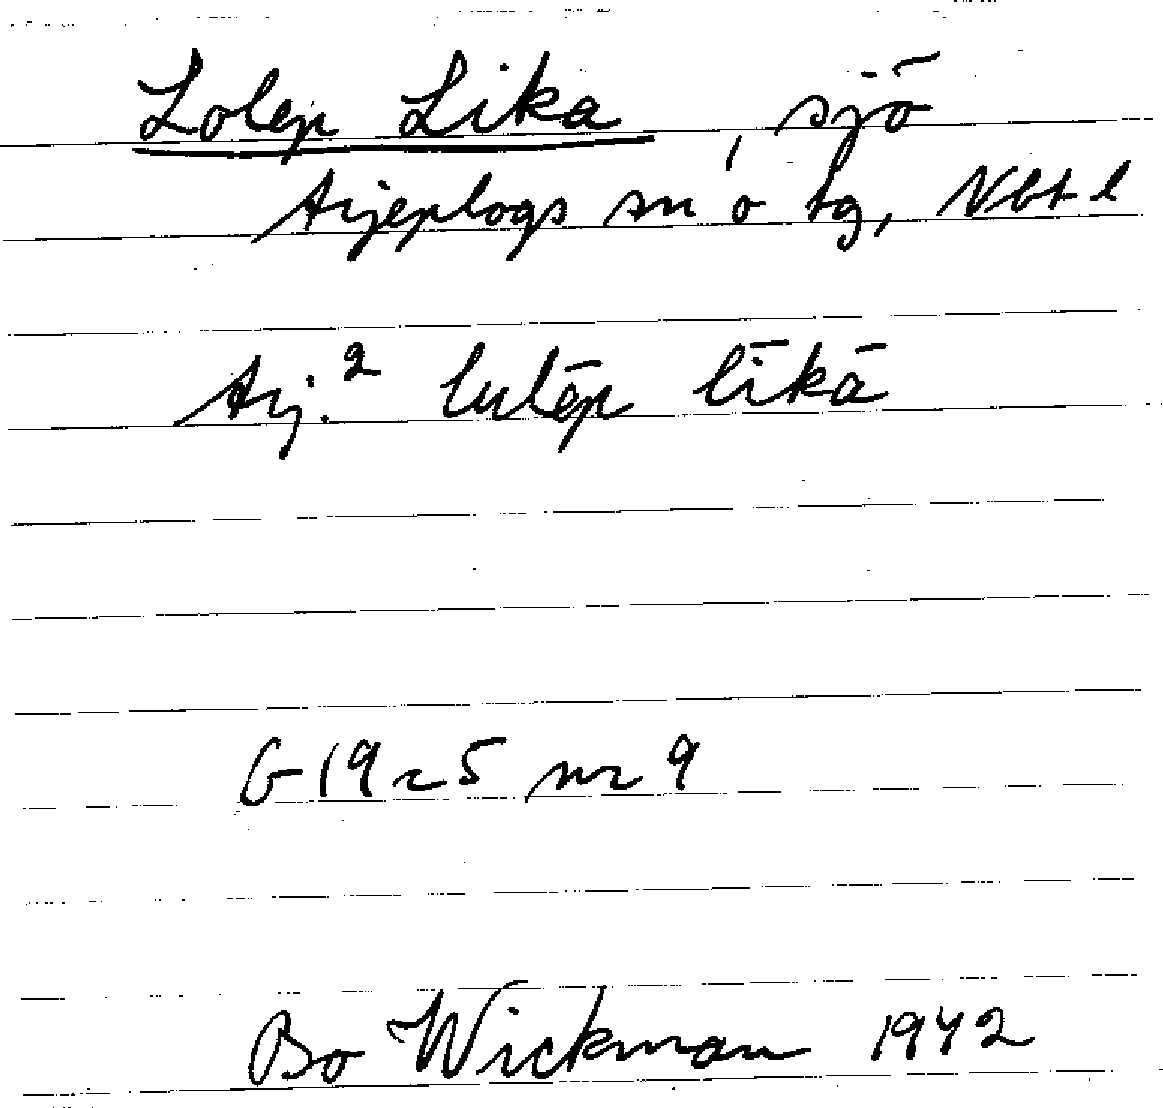 Lolep Lika, sjö
Arjeplogs sn o tg, Nbt l
Arj.² lulēp līkā
G 19 r 5 nr 9
Bo Wickman 1942